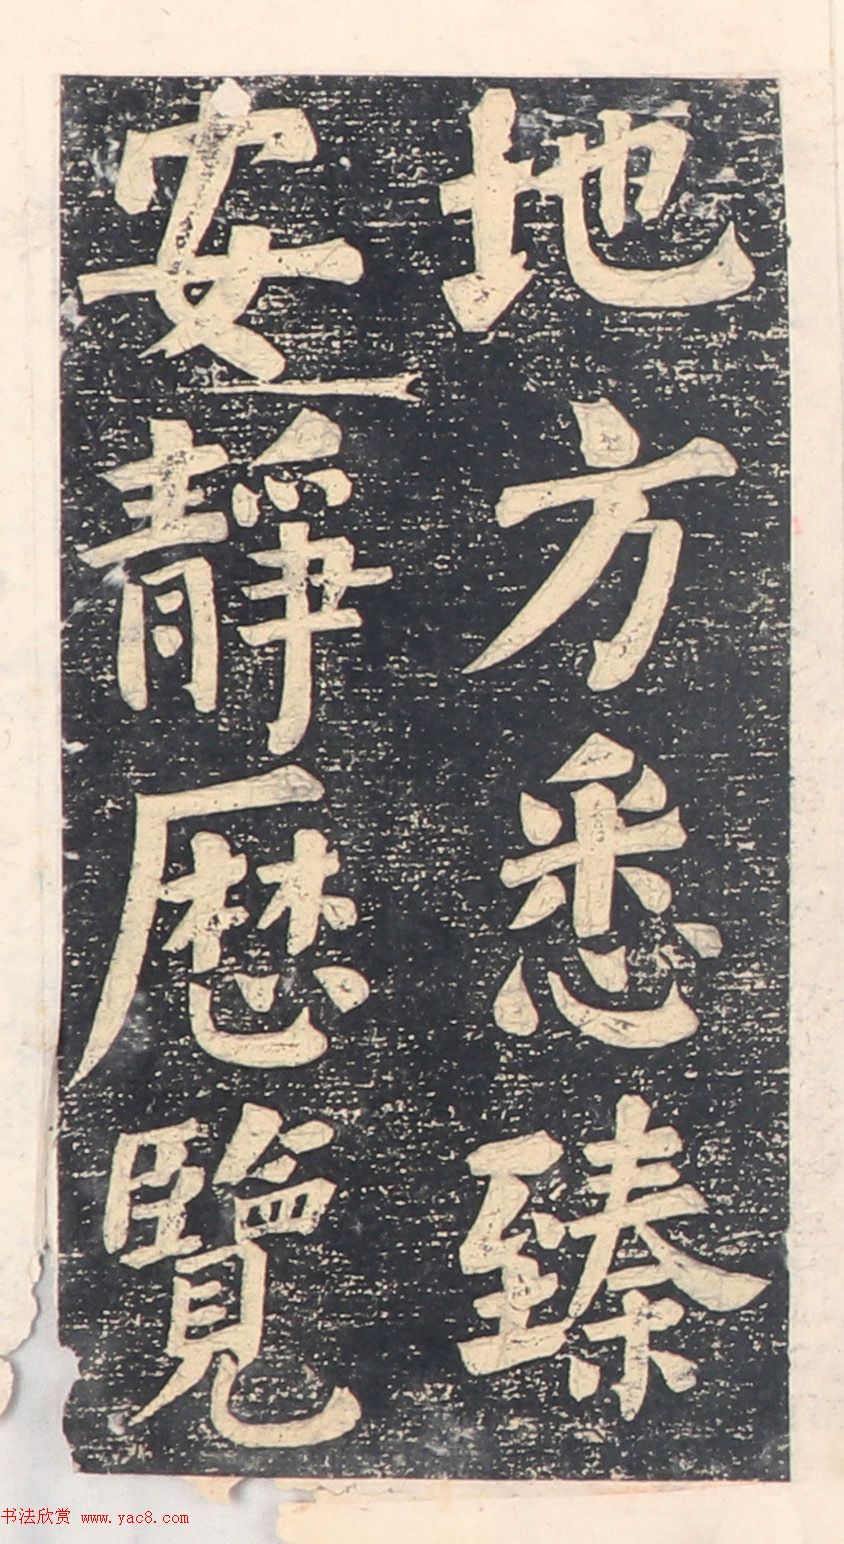 地方悉臻
安靜曆覽
书法欣赏 www.yac8.com